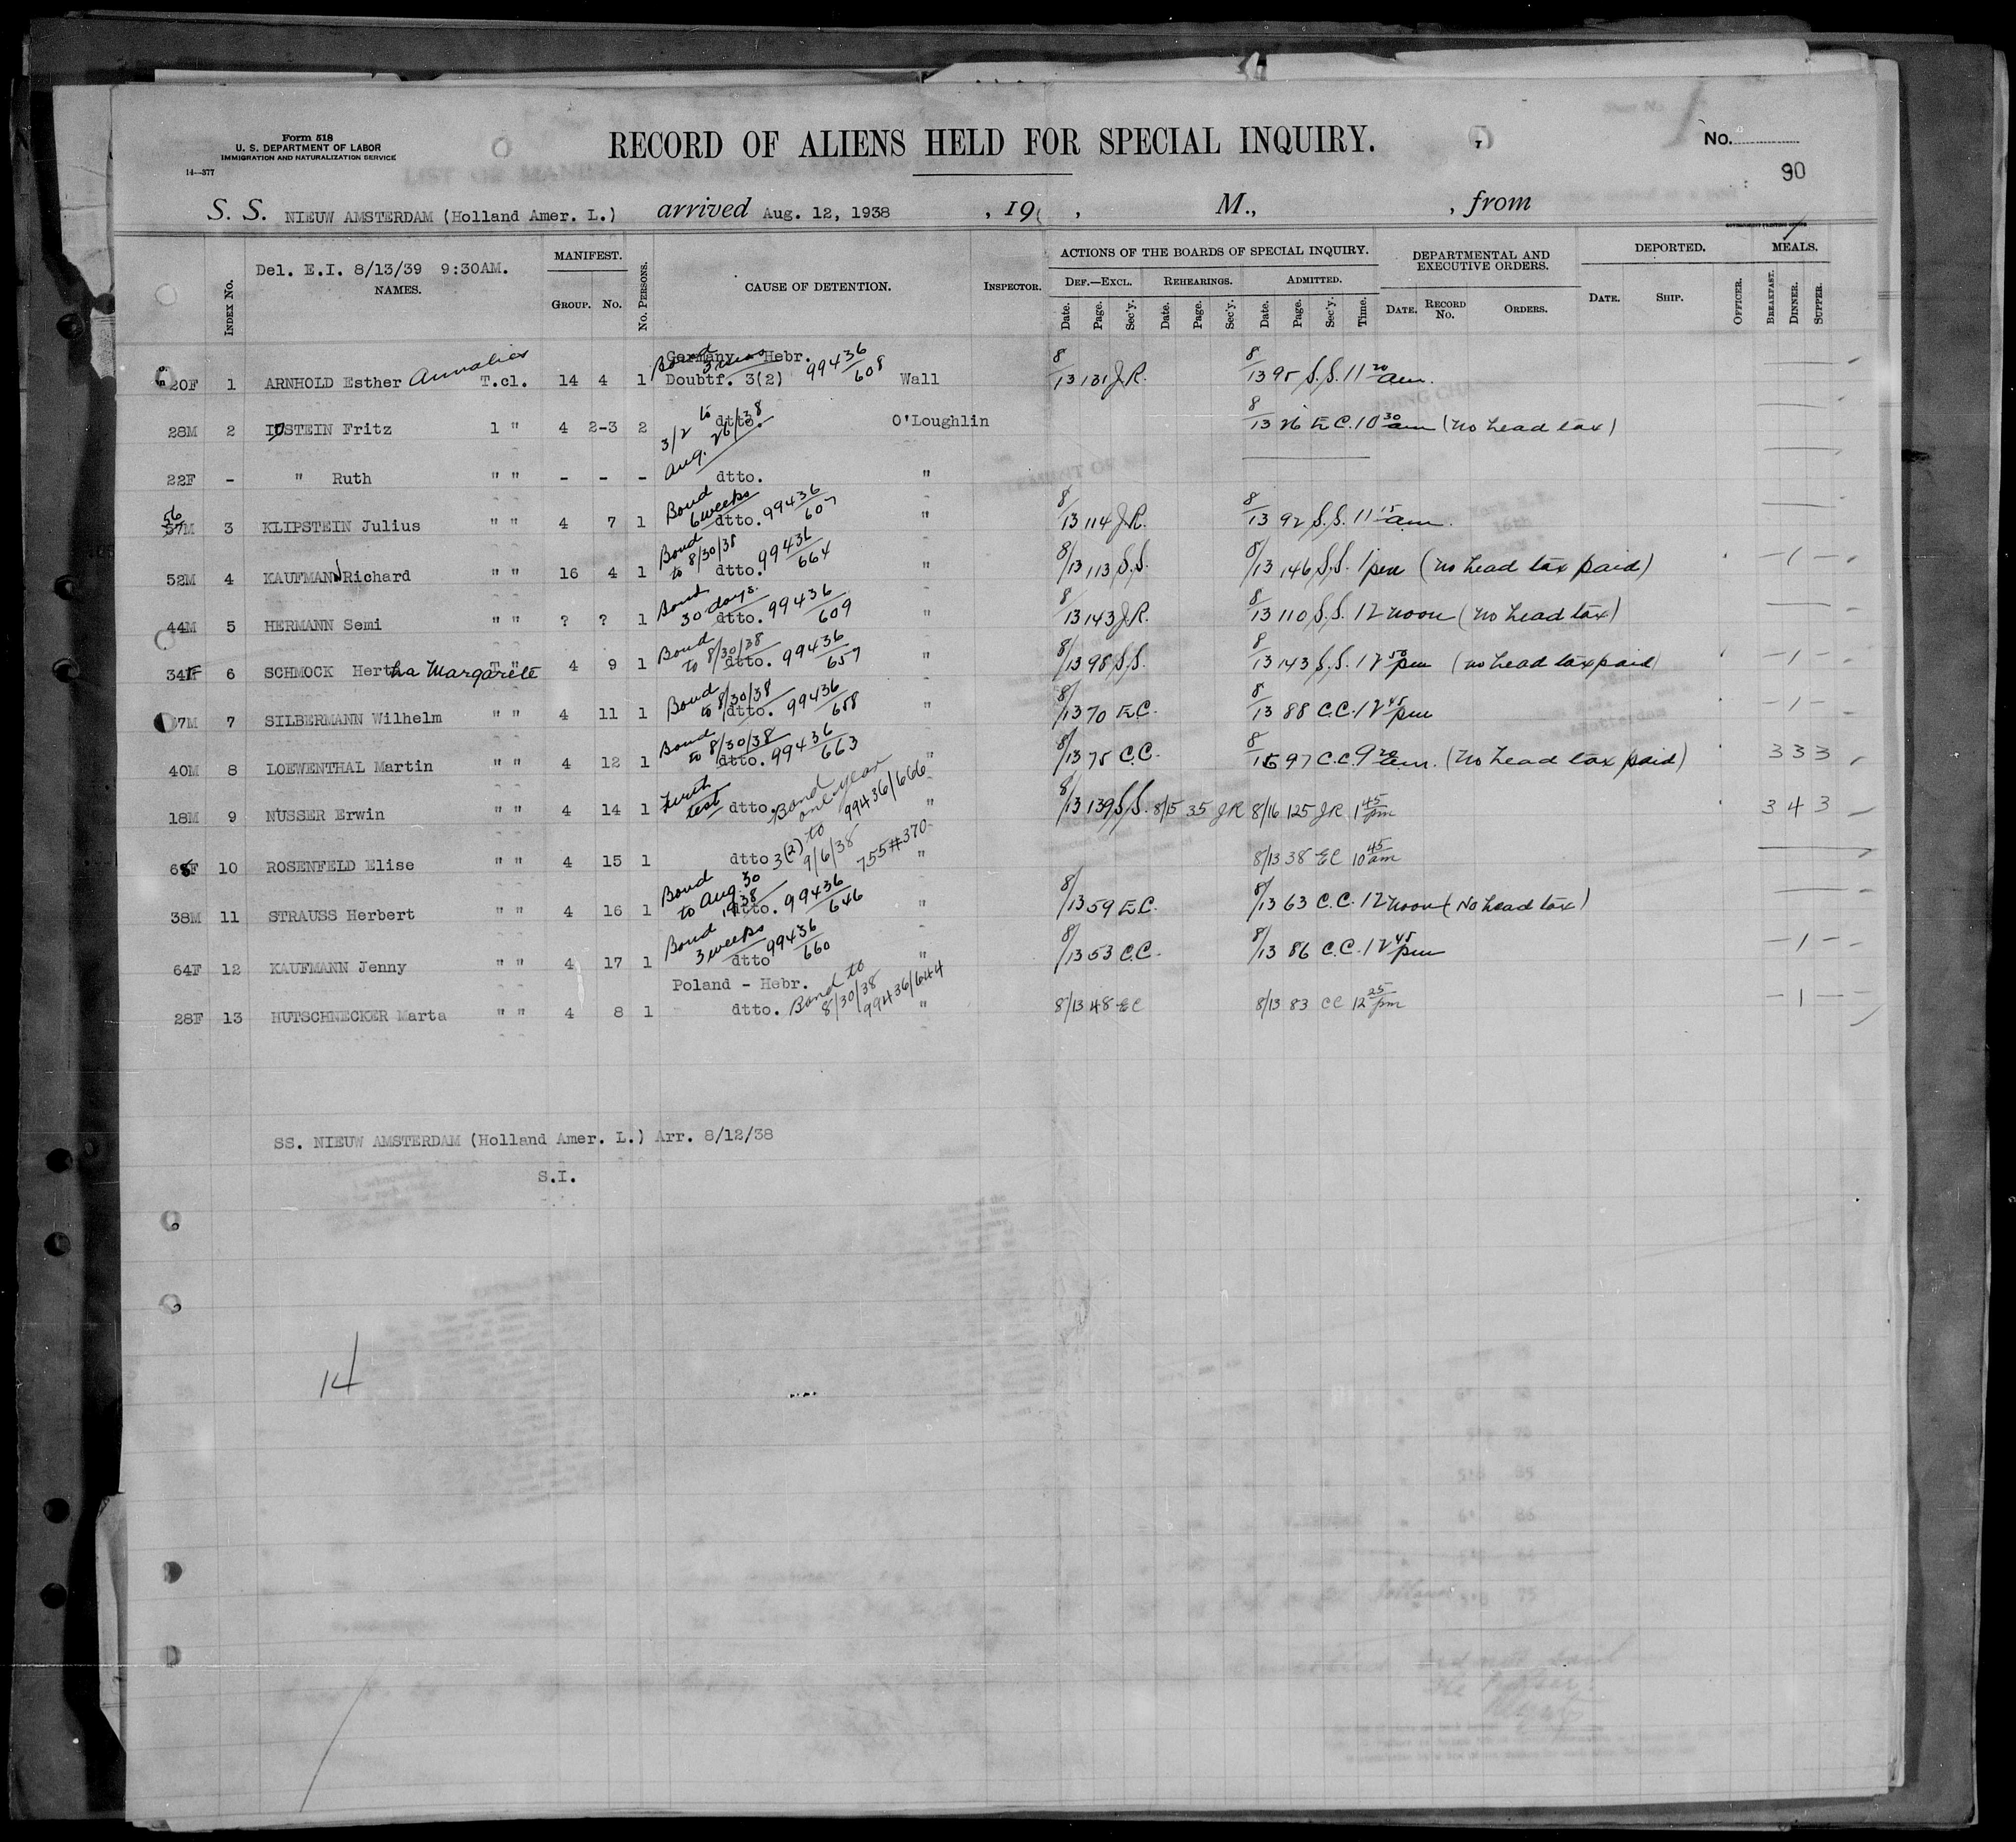 Form 518
U. S. DEPARTMENT OF LABOR
IMMIGRATION AND NATURALIZATION SERVICE
14—377
RECORD OF ALIENS HELD FOR SPECIAL INQUIRY.
No.
90
S. S. NIEUW AMSTERDAM (Holland Amer. L.) arrived Aug. 12, 1938 , 19 , M., , from
Del. E.I. 8/13/39 9:30AM.
INDEX No. NAMES. MANIFEST. GROUP. No. No. PERSONS. CAUSE OF DETENTION. INSPECTOR. ACTIONS OF THE BOARDS OF SPECIAL INQUIRY. DEF.—EXCL. Date. Page. Sec'y. REHEARINGS. Date. Page. Sec'y. ADMITTED. Date. Page. Sec'y. Time. DEPARTMENTAL AND EXECUTIVE ORDERS. DATE. RECORD No. ORDERS. DEPORTED. DATE. SHIP. OFFICER. MEALS. BREAKFAST. DINNER. SUPPER.
Germany Hebr.
20F 1 ARNHOLD Esther T.cl. 14 4 1 Bond Doubtf. 3(2) 99436/608 Wall 8/13 131 J.R. 8/13 95 S.S. 11 20 am.
28M 2 STEIN Fritz 1 " 4 2-3 2 3/2 to Aug. 26/38 dtto. O'Loughlin 8/13 26 E.C. 10 30 am (No head tax)
22F - " Ruth " " - - - dtto. "
56 57M 3 KLIPSTEIN Julius " " 4 7 1 Bond 6 weeks dtto. 99436/607 " 8/13 114 J.R. 8/13 92 S.S. 11 15 am.
52M 4 KAUFMANN Richard " " 16 4 1 Bond to 8/30/38 dtto. 99436/664 " 8/13 113 S.S. 8/13 146 S.S. 1 pm (No head tax paid) — 1 —
44M 5 HERMANN Semi " " ? ? 1 Bond 30 days. dtto. 99436/609 " 8/13 143 J.R. 8/13 110 S.S. 12 noon (No head tax)
34F 6 SCHMOCK Hertha Margarete T " 4 9 1 Bond to 8/30/38 dtto. 99436/657 " 8/13 98 S.S. 8/13 143 S.S. 12 50 pm (no head tax paid) — 1 —
7M 7 SILBERMANN Wilhelm " " 4 11 1 Bond to 8/30/38 dtto. 99436/658 " 8/13 70 E.C. 8/13 88 C.C. 12 45 pm — 1 —
40M 8 LOEWENTHAL Martin " " 4 12 1 Bond to 8/30/38 dtto. 99436/663 " 8/13 75 C.C. 8/15 97 C.C. 9 20 am. (No head tax paid) 3 3 3
18M 9 NUSSER Erwin " " 4 14 1 test dtto. Bond one year 99436/666 " 8/13 139 S.S. 8/15 35 JR 8/16 125 JR 1 45 pm 3 4 3
F 10 ROSENFELD Elise " " 4 15 1 dtto 3(2) to 9/6/38 755#370 " 8/13 38 EC 10 45 am
38M 11 STRAUSS Herbert " " 4 16 1 Bond to Aug. 30 1938 dtto. 99436/646 " 8/13 59 E.C. 8/13 63 C.C. 12 noon (No head tax)
64F 12 KAUFMANN Jenny " " 4 17 1 Bond 3 weeks dtto 99436/660 " 8/13 53 C.C. 8/13 86 C.C. 12 45 pm — 1 —
Poland - Hebr.
28F 13 HUTSCHNECKER Marta " " 4 8 1 dtto. Bond to 8/30/38 99436/644 " 8/13 48 EC 8/13 83 CC 12 25 pm — 1 —
SS. NIEUW AMSTERDAM (Holland Amer. L.) Arr. 8/12/38
S.I.
14